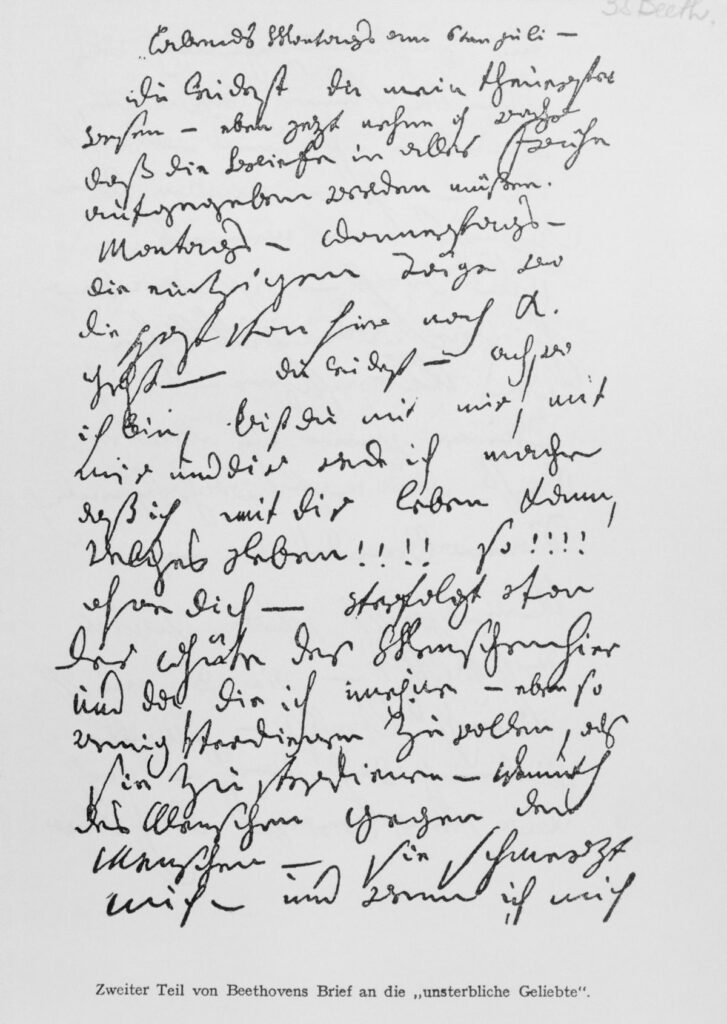 35 Beeth.
Abends Montags am 6ten juli –
Du leidest du mein theuerstes
wesen – eben jezt nehme ich wahr
daß die Briefe in aller Frühe
aufgegeben werden müßen.
Montags – Donnerstags –
die eintzigen Täge wo
die Post von hier nach K.
geht – du leidest – ach, wo
ich bin, bist du mit mir, mit
mir und dir ich mache
daß ich mit dir leben kann,
welches Leben!!!! so!!!!
ohne dich – Verfolgt von
der Güte der Menschen hier
und da, die ich meyne – eben so
wenig verdienen zu wollen, als
sie zu verdienen – Demuth
des Menschen gegen den
Menschen – sie schmerzt
mich – und wenn ich mich
Zweiter Teil von Beethovens Brief an die „unsterbliche Geliebte“.